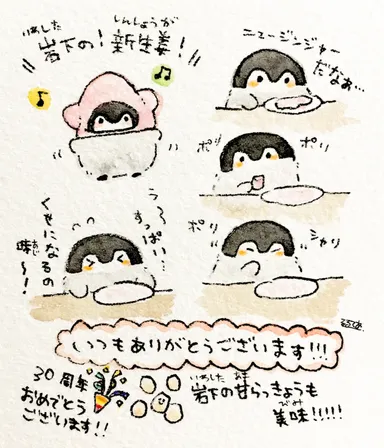 いわした しんしょうが
岩下の！新生姜！
ニュージンジャー
だなぁ…
ポリ
ポリ
ポリ
シャリ
う〜〜
すっぱい…
くせになるの
味〜！
あじ
いつもありがとうございます!!!
30周年
おめでとう
ございます!!
いわした あま
岩下の甘らっきょうも
美味!!!!!
びみ